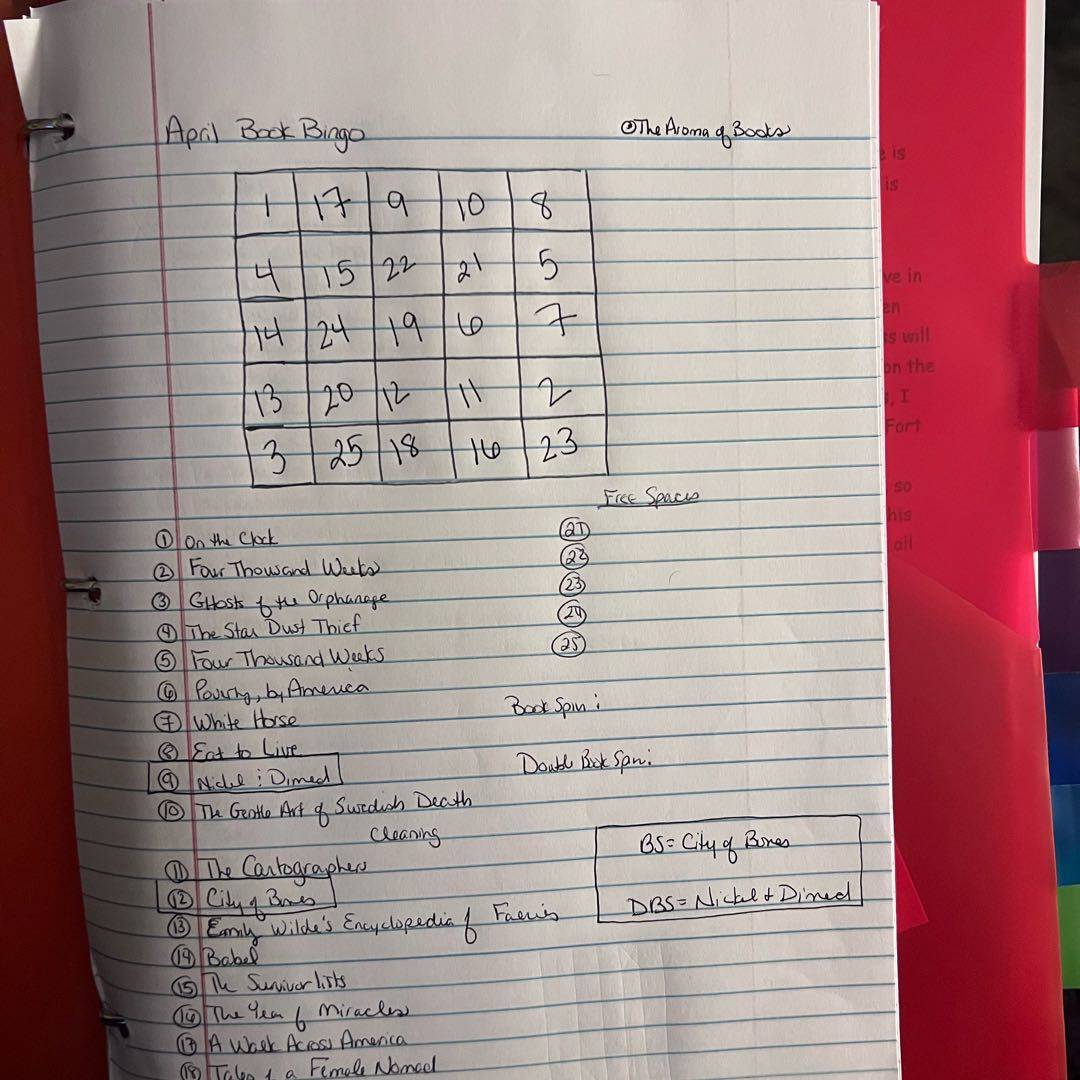 April Book Bingo
@The Aroma of Books
1 17 9 10 8
4 15 22 21 5
14 24 19 6 7
13 20 12 11 2
3 25 18 16 23
Free Spaces
① On the Clock
② Four Thousand Weeks
③ Ghosts of the Orphanage
④ The Star Dust Thief
⑤ Four Thousand Weeks
⑥ Poverty, by America
⑦ White Horse
⑧ Eat to Live
⑨ Nickel & Dimed
⑩ The Gentle Art of Swedish Death
Cleaning
⑪ The Cartographers
⑫ City of Bones
⑬ Emily Wilde's Encyclopedia of Faeries
⑭ Babel
⑮ The Survivorlists
⑯ The Year of Miracles
⑰ A Walk Across America
⑱ Tales of a Female Nomad
㉑
㉒
㉓
㉔
㉕
Book Spin:
Double Book Spin:
BS= City of Bones
DBS= Nickel & Dimed
e is
is
ve in
en
ss will
on the
, I
Fort
so
his
ail